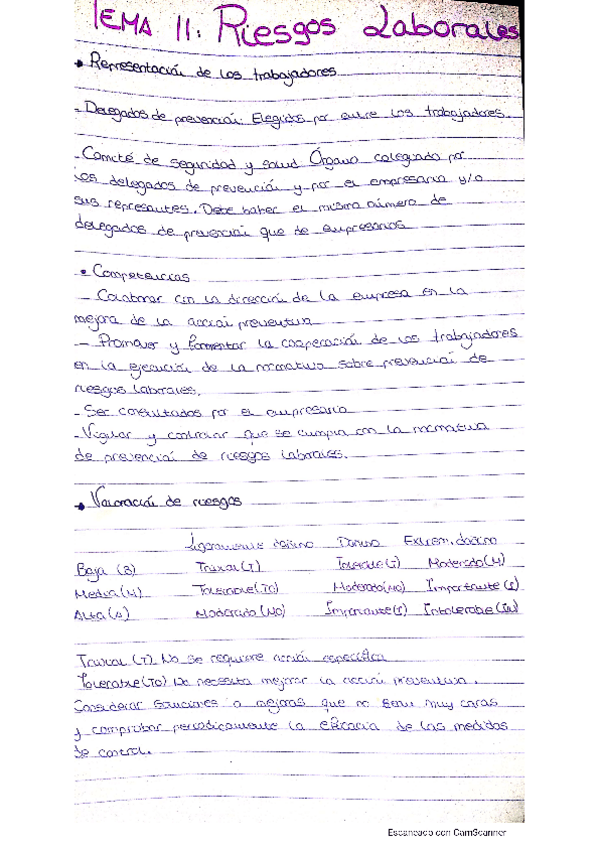 TEMA 11: Riesgos Laborales
• Representación de los trabajadores
- Delegados de prevención: Elegidos por entre los trabajadores.
- Comité de seguridad y salud Órgano colegiado por
los delegados de prevención y por el empresario y/o
sus represantes. Debe haber el mismo número de
delegados de prevención que de empresarios
• Competencias
- Colaborar con la dirección de la empresa en la
mejora de la acción preventiva
- Promover y fomentar la cooperación de los trabajadores
en la ejecución de la normativa sobre prevención de
riesgos laborales.
- Ser consultados por el empresario
- Vigilar y controlar que se cumpla con la normativa
de prevención de riesgos laborales.
• Valoración de riesgos
Ligeramente dañino Dañino Extrem. dañino
Baja (B) Trivial (T) Tolerable (T) Moderado (M)
Media (M) Tolerable (TO) Moderado (MO) Importante (I)
Alta (A) Moderado (MO) Importante (I) Intolerable (IN)
Trivial (T) No se requiere acción específica
Tolerable (TO) No necesita mejorar la acción preventiva.
Considerar soluciones o mejoras que no sean muy caras
y comprobar periódicamente la eficacia de las medidas
de control.
Escaneado con CamScanner